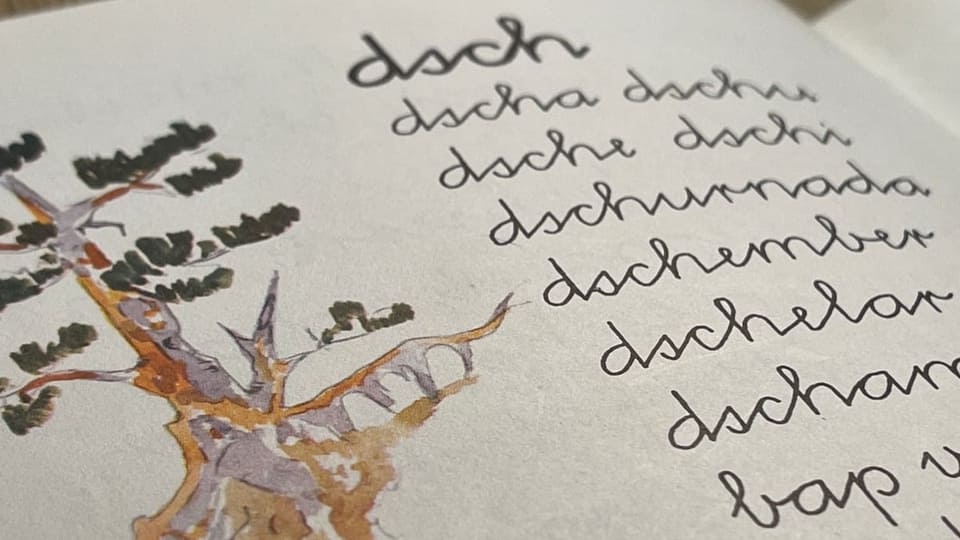 dsch
dscha dschu
dsche dschi
dschurnada
dschember
dschelar
bap